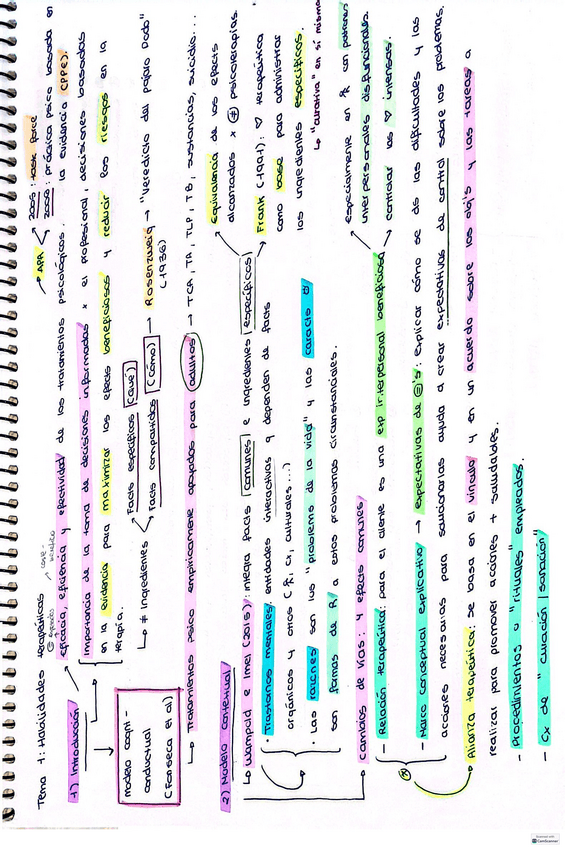 Tema 1: Habilidades terapéuticas
1) Introducción
eficacia, eficiencia y efectividad de los tratamientos psicológicos.
APA
2005: task force
2006: práctica psico basada en la evidencia (PPE).
coste-beneficio
Importancia de la toma de decisiones informadas x el profesional, decisiones basadas
en la evidencia para maximizar los efects beneficiosos y reducir los riesgos en la
terapia.
modelo cogni-
conductual
(Fonseca et al)
# ingredientes
Facts específicos (qué)
Facts compartidos (cómo)
Rosenzweig (1936)
"Veredicto del pájaro Dodo"
Tratamientos psico empíricamente apoyados para adultos → TCA, TA, TLP, TB, sustancias, suicidio...
2) Modelo contextual
Wampold e Imel (2015): integra facts comunes e ingredientes específicos
Equivalencia de los efects
alcanzados x ≠ psicoterapias.
Frank (1991): terapéutica
como base para administrar
los ingredientes específicos.
↳ "curativa" en sí misma
• Trastornos mentales: entidades interactivas y dependen de facts
orgánicos y otros (culturales...)
• Las raíces son los "problems de la vida" y las caracts
son formas de R a estos problemas circunstanciales.
Cambios de vías: y efects comunes
- Relación terapéutica: para el cliente es una exp interpersonal beneficiosa
especialmente en con patrones
interpersonales disfuncionales.
controlar las intensas.
- Marco conceptual explicativo → expectativas de explicar cómo se dan las dificultades y las
acciones necesarias para solucionarlas ayuda a crear expectativas de control sobre los problemas.
Alianza terapéutica: se basa en el vínculo y en un acuerdo sobre los objs y las tareas a
realizar para promover acciones + saludables.
- Procedimientos o "rituales" empleados.
- Cx de "curación/sanación"
Scanned with
CamScanner